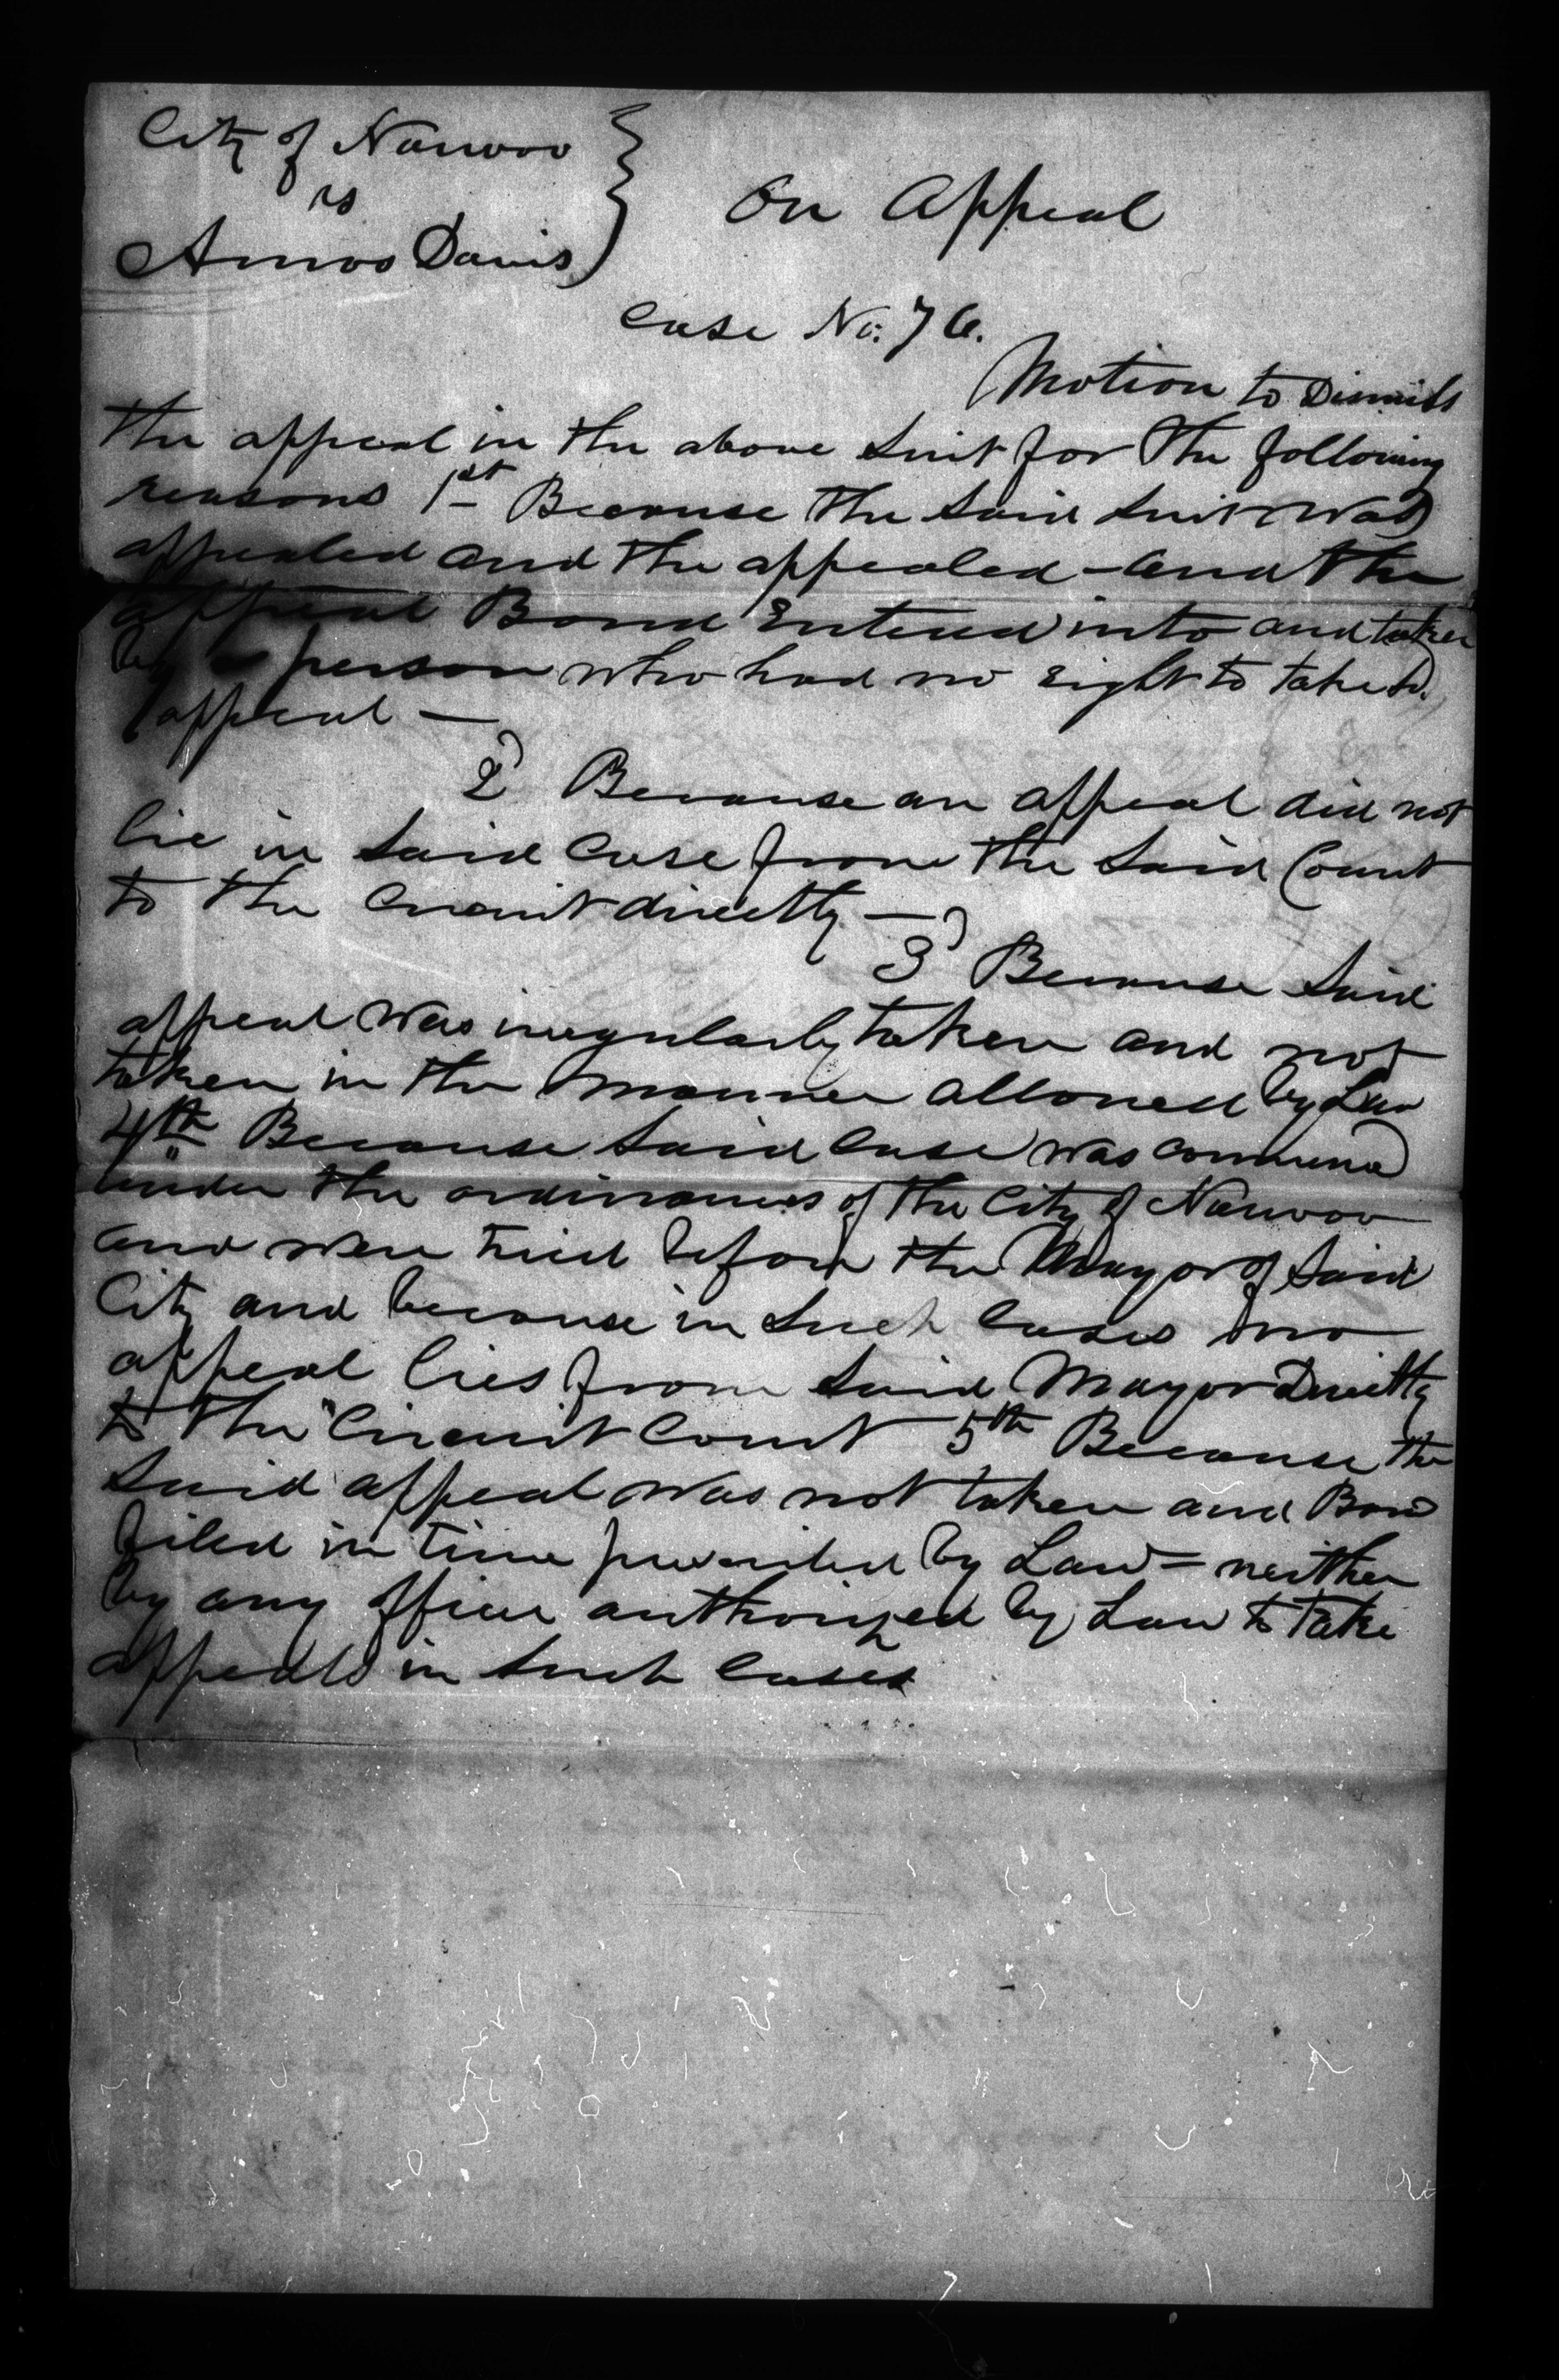 City of Nauvoo
vs
Amos Davis
On Appeal
Case No. 76.
Motion to Dismiss
the appeal in the above Suit for the following
reasons 1st Because the Said Suit was
appealed and the appealed - and the
appeal Bond Entered into and taken
by a person who had no right to take sd.
appeal —
2d Because an appeal did not
lie in Said Case from the Said Court
to the Circuit directly —
3d Because Said
appeal was iregularly taken and not
taken in the manner allowed by Law
4th Because Said Case was commencd
under the ordinances of the City of Nauvoo
and were tried before the Mayor of Said
City and because in Such Cases no
appeal lies from Said Mayor Directly
to the Circuit Court 5th Because the
Said appeal was not taken and Bond
filed in time provided by Law = neither
by any officer authorized by Law to take
appeals in Such Cases